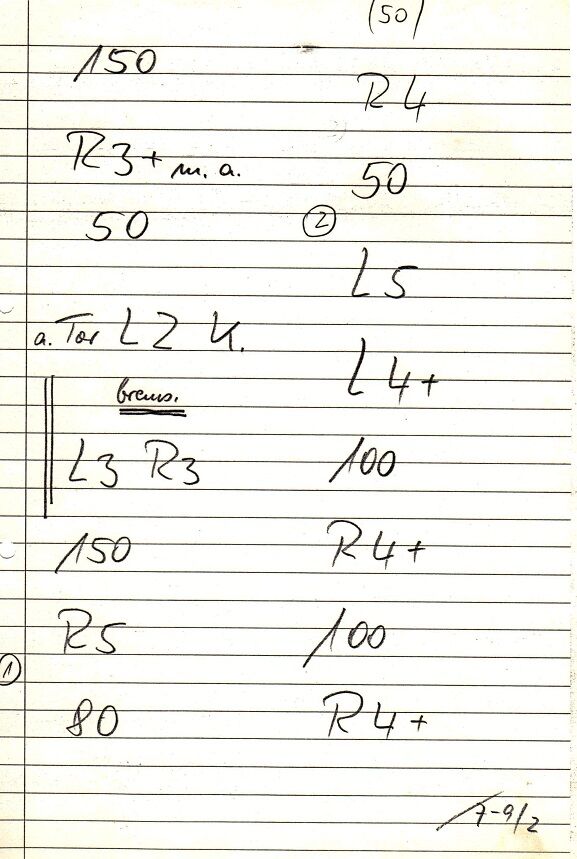 150
R3+ m. a.
50
a. Tor L2 K.
brems.
L3 R3
150
R5
①
80
(50)
R4
50
②
L5
L4+
100
R4+
100
R4+
7-9/2